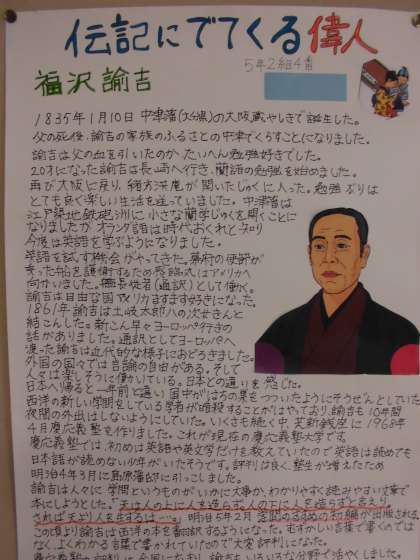 伝記にでてくる偉人
5年2組4番
福沢諭吉
1835年1月10日 中津藩の大阪蔵やしきで誕生しました。
父の死後、諭吉の家族のふるさとの中津でくらすことになりました。
諭吉は父の血を引いたのか、たいへん勉強好きでした。
20才になった諭吉は長崎へ行き、蘭語の勉強を始めました。
再び大阪に戻り、緒方洪庵が開いたじゅくに入った。勉強ぶりは
とても良く楽しい生活を送っていました。中津藩は
江戸築地鉄砲洲に小さな蘭学じゅくを開くことに
なりましたが、オランダ語は時代おくれと知り
今度は英語を学ぶようになりました。
英語を試す機会がやってきた。幕府の使節が
乗った船を護衛するため咸臨丸はアメリカへ
向かいました。艦長従者(通訳)として働く。
諭吉は自由な国アメリカますます好きになった。
1861年 諭吉は土岐太郎八の次女きんと
結こんした。新こん早々ヨーロッパ行きの
話がありました。通訳としてヨーロッパへ
渡った諭吉は近代的な様子におどろきました。
外国の国々では言論の自由がある。そして
人々は楽しそうに働いている。日本との違いを感じた。
日本へ帰ると一年前と違い国中がはちの巣をつついたようにそうぜんとしていた
西洋の新しい学問をしている学者が暗殺することがはやっており、諭吉も10年間
夜間の外出はしないようにしていました。いくさも続く中、芝新銭座に1968年
4月慶応義塾を作りました。これが現在の慶応義塾大学です。
慶応義塾では、初めは英語や英文学だけを教えていたので英語は読めても
日本語が読めない少年がいたそうです。評判は良く、塾生が増えたため
明治4年3月に島原藩邸に引っこしました。
諭吉は人々に学問というものがいかに大事か、わかりやすく読みやすい文章で
本にしようとした。「天は人の上に人を造らず人の下に人を造らずと言えり。
されば天より人を生ずるは…。」明治5年2月 学問のすすめの初編が出版された
この頃より諭吉は西洋の本を翻訳するようになった。むずかしい言葉で書くのでは
なく、よくわかる言葉で書かれていたので大変評判になりました。